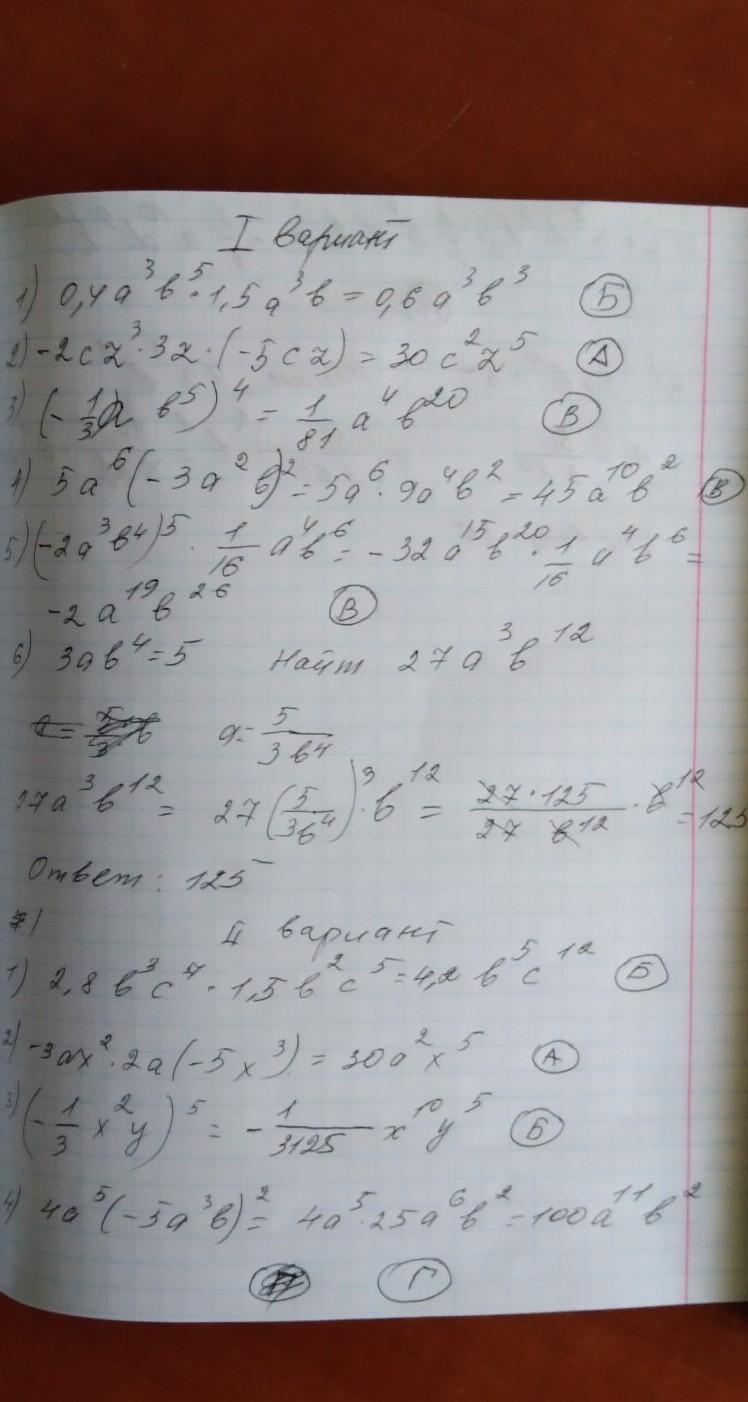 I вариант
1) 0,4a³b⁵·1,5a³b = 0,6a³b³ (Б)
2) -2cz³·3z·(-5cz) = 30c²z⁵ (А)
3) (-1/3 a b⁵)⁴ = 1/81 a⁴b²⁰ (В)
4) 5a⁶(-3a²b)² = 5a⁶·9a⁴b² = 45a¹⁰b² (В)
5) (-2a³b⁴)⁵ · 1/16 a⁴b⁶ = -32a¹⁵b²⁰ · 1/16 a⁴b⁶ =
-2a¹⁹b²⁶ (В)
6) 3ab⁴=5 Найт 27a³b¹²
a = 5/3b⁴
27a³b¹² = 27(5/3b⁴)³·b¹² = 27·125/27 b¹² · b¹² = 125
Ответ: 125
7)
II вариант
1) 2,8b³c⁷·1,5b²c⁵ = 4,2b⁵c¹² (Б)
2) -3ax²·2a(-5x³) = 30a²x⁵ (А)
3) (-1/3 x²y)⁵ = -1/3125 x¹⁰y⁵ (Б)
4) 4a⁵(-5a³b)² = 4a⁵·25a⁶b² = 100a¹¹b²
(Г)